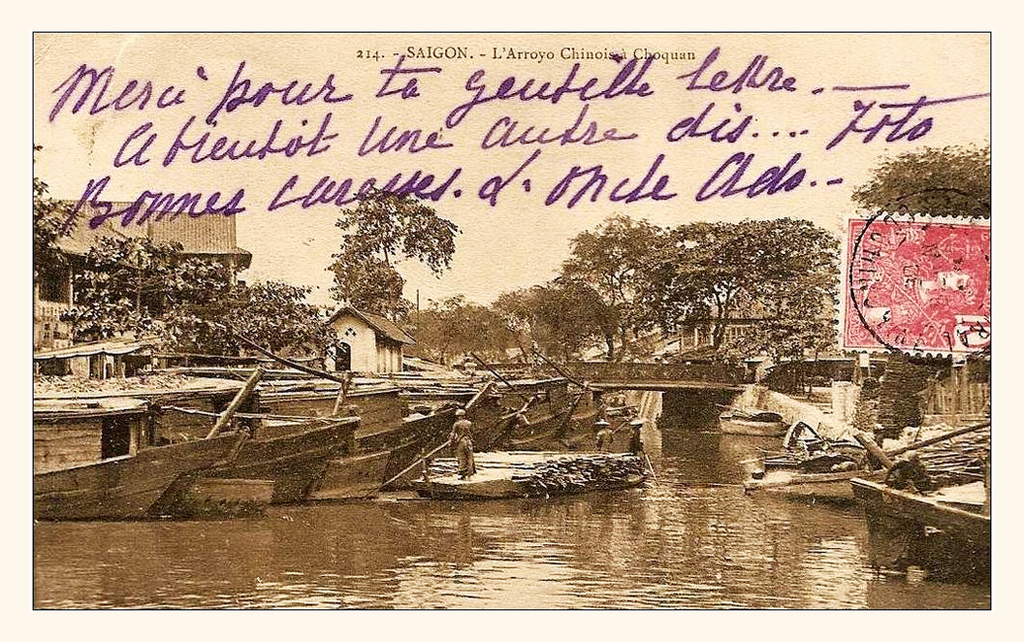 214. - SAIGON. - L'Arroyo Chinois à Choquan
Merci pour ta gentille lettre. —
A bientôt une autre dis.... Toto
Bonnes caresses. L'oncle Ado. -